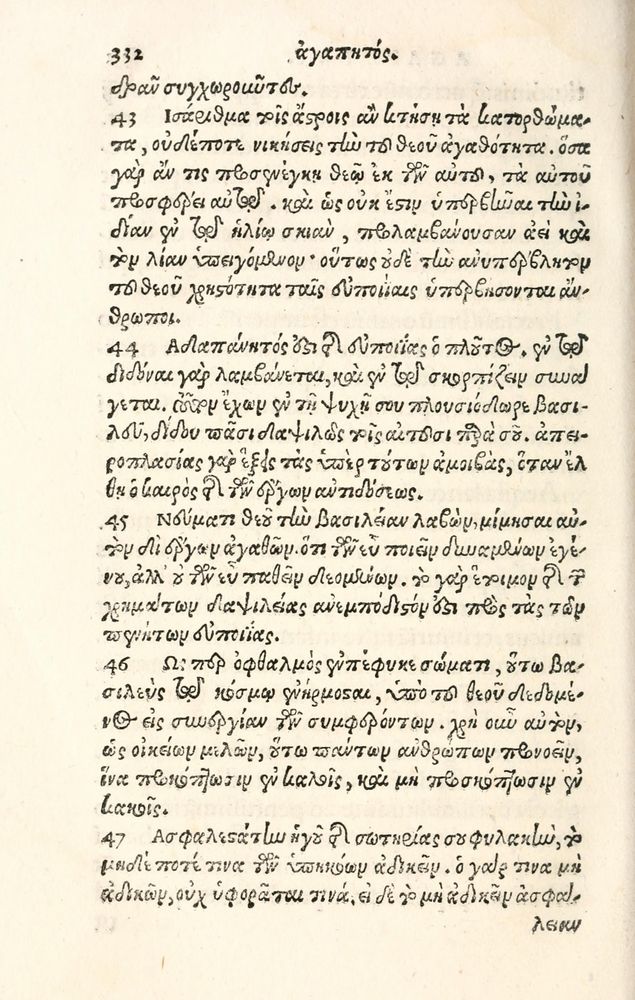 332 ἀγαπητός.
δρᾶν συγχωροιῶντου.
43 Ισάριθμα τοῖς ἄστροις ἂν κτήσῃ τὰ κατορθώμα-
τα, οὐδέποτε νικήσεις τὴν τοῦ θεοῦ ἀγαθότητα. ὅσα
γὰρ ἄν τις προσενέγκῃ θεῷ ἐκ τῶν αὐτοῦ, τὰ αὐτοῦ
προσφέρει αὐτῷ. καὶ ὡς οὐκ ἔστιν ὑπερβῆναι τὴν ἰ-
δίαν ἐν τῷ ἡλίῳ σκιὰν, προλαμβάνουσαν ἀεὶ καὶ
τὸν λίαν ἐπειγόμενον· οὕτως οὐδὲ τὴν ἀνυπέρβλητον
τοῦ θεοῦ χρηστότητα ταῖς εὐποιίαις ὑπερβήσονται ἄν-
θρωποι.
44 Αδαπάνητός ἐστι τῆς εὐποιίας ὁ πλοῦτος. ἐν τῷ
διδόναι γὰρ λαμβάνεται, καὶ ἐν τῷ σκορπίζειν συνά
γεται. τοῦτον ἔχων ἐν τῇ ψυχῇ σου πλουσιόδωρε βασι-
λεῦ, δίδου πᾶσι δαψιλῶς τοῖς αἰτοῦσι παρὰ σοῦ. ἀπει-
ροπλασίας γὰρ ἕξεις τὰς ὑπὲρ τούτων ἀμοιβὰς, ὅταν ἔλ
θῃ ὁ καιρὸς τῆς τῶν ἔργων ἀντιδόσεως.
45 Νεύματι θεοῦ τὴν βασιλείαν λαβὼν, μίμησαι αὐ-
τὸν δι' ἔργων ἀγαθῶν. ὅτι τῶν εὖ ποιεῖν δυναμένων ἐγέ-
νου, ἀλλ' οὐ τῶν εὖ παθεῖν δεομένων. τὸ γὰρ ἕτοιμον τῆς τῶν
χρημάτων δαψιλείας ἀνεμπόδιστόν ἐστι πρὸς τὰς τῶν
πενήτων εὐποιίας.
46 Ωσπερ ὀφθαλμὸς ἐμπέφυκε σώματι, οὕτω βα-
σιλεὺς τῷ κόσμῳ ἐνήρμοσται, ὑπὸ τοῦ θεοῦ δεδομέ-
νος εἰς συνεργίαν τῶν συμφερόντων. χρὴ οὖν αὐτὸν,
ὡς οἰκείων μελῶν, οὕτω πάντων ἀνθρώπων προνοεῖν,
ἵνα προκόπτωσιν ἐν καλοῖς, καὶ μὴ προσκόπτωσιν ἐν
κακοῖς.
47 Ασφαλεστάτην ἡγοῦ τῆς σωτηρίας σου φυλακὴν, τὸ
μηδέποτέ τινα τῶν ὑπηκόων ἀδικεῖν. ὁ γάρ τινα μὴ
ἀδικῶν, οὐχ ὑφορᾶται τινά. εἰ δὲ τὸ μὴ ἀδικεῖν ἀσφά-
λειαν